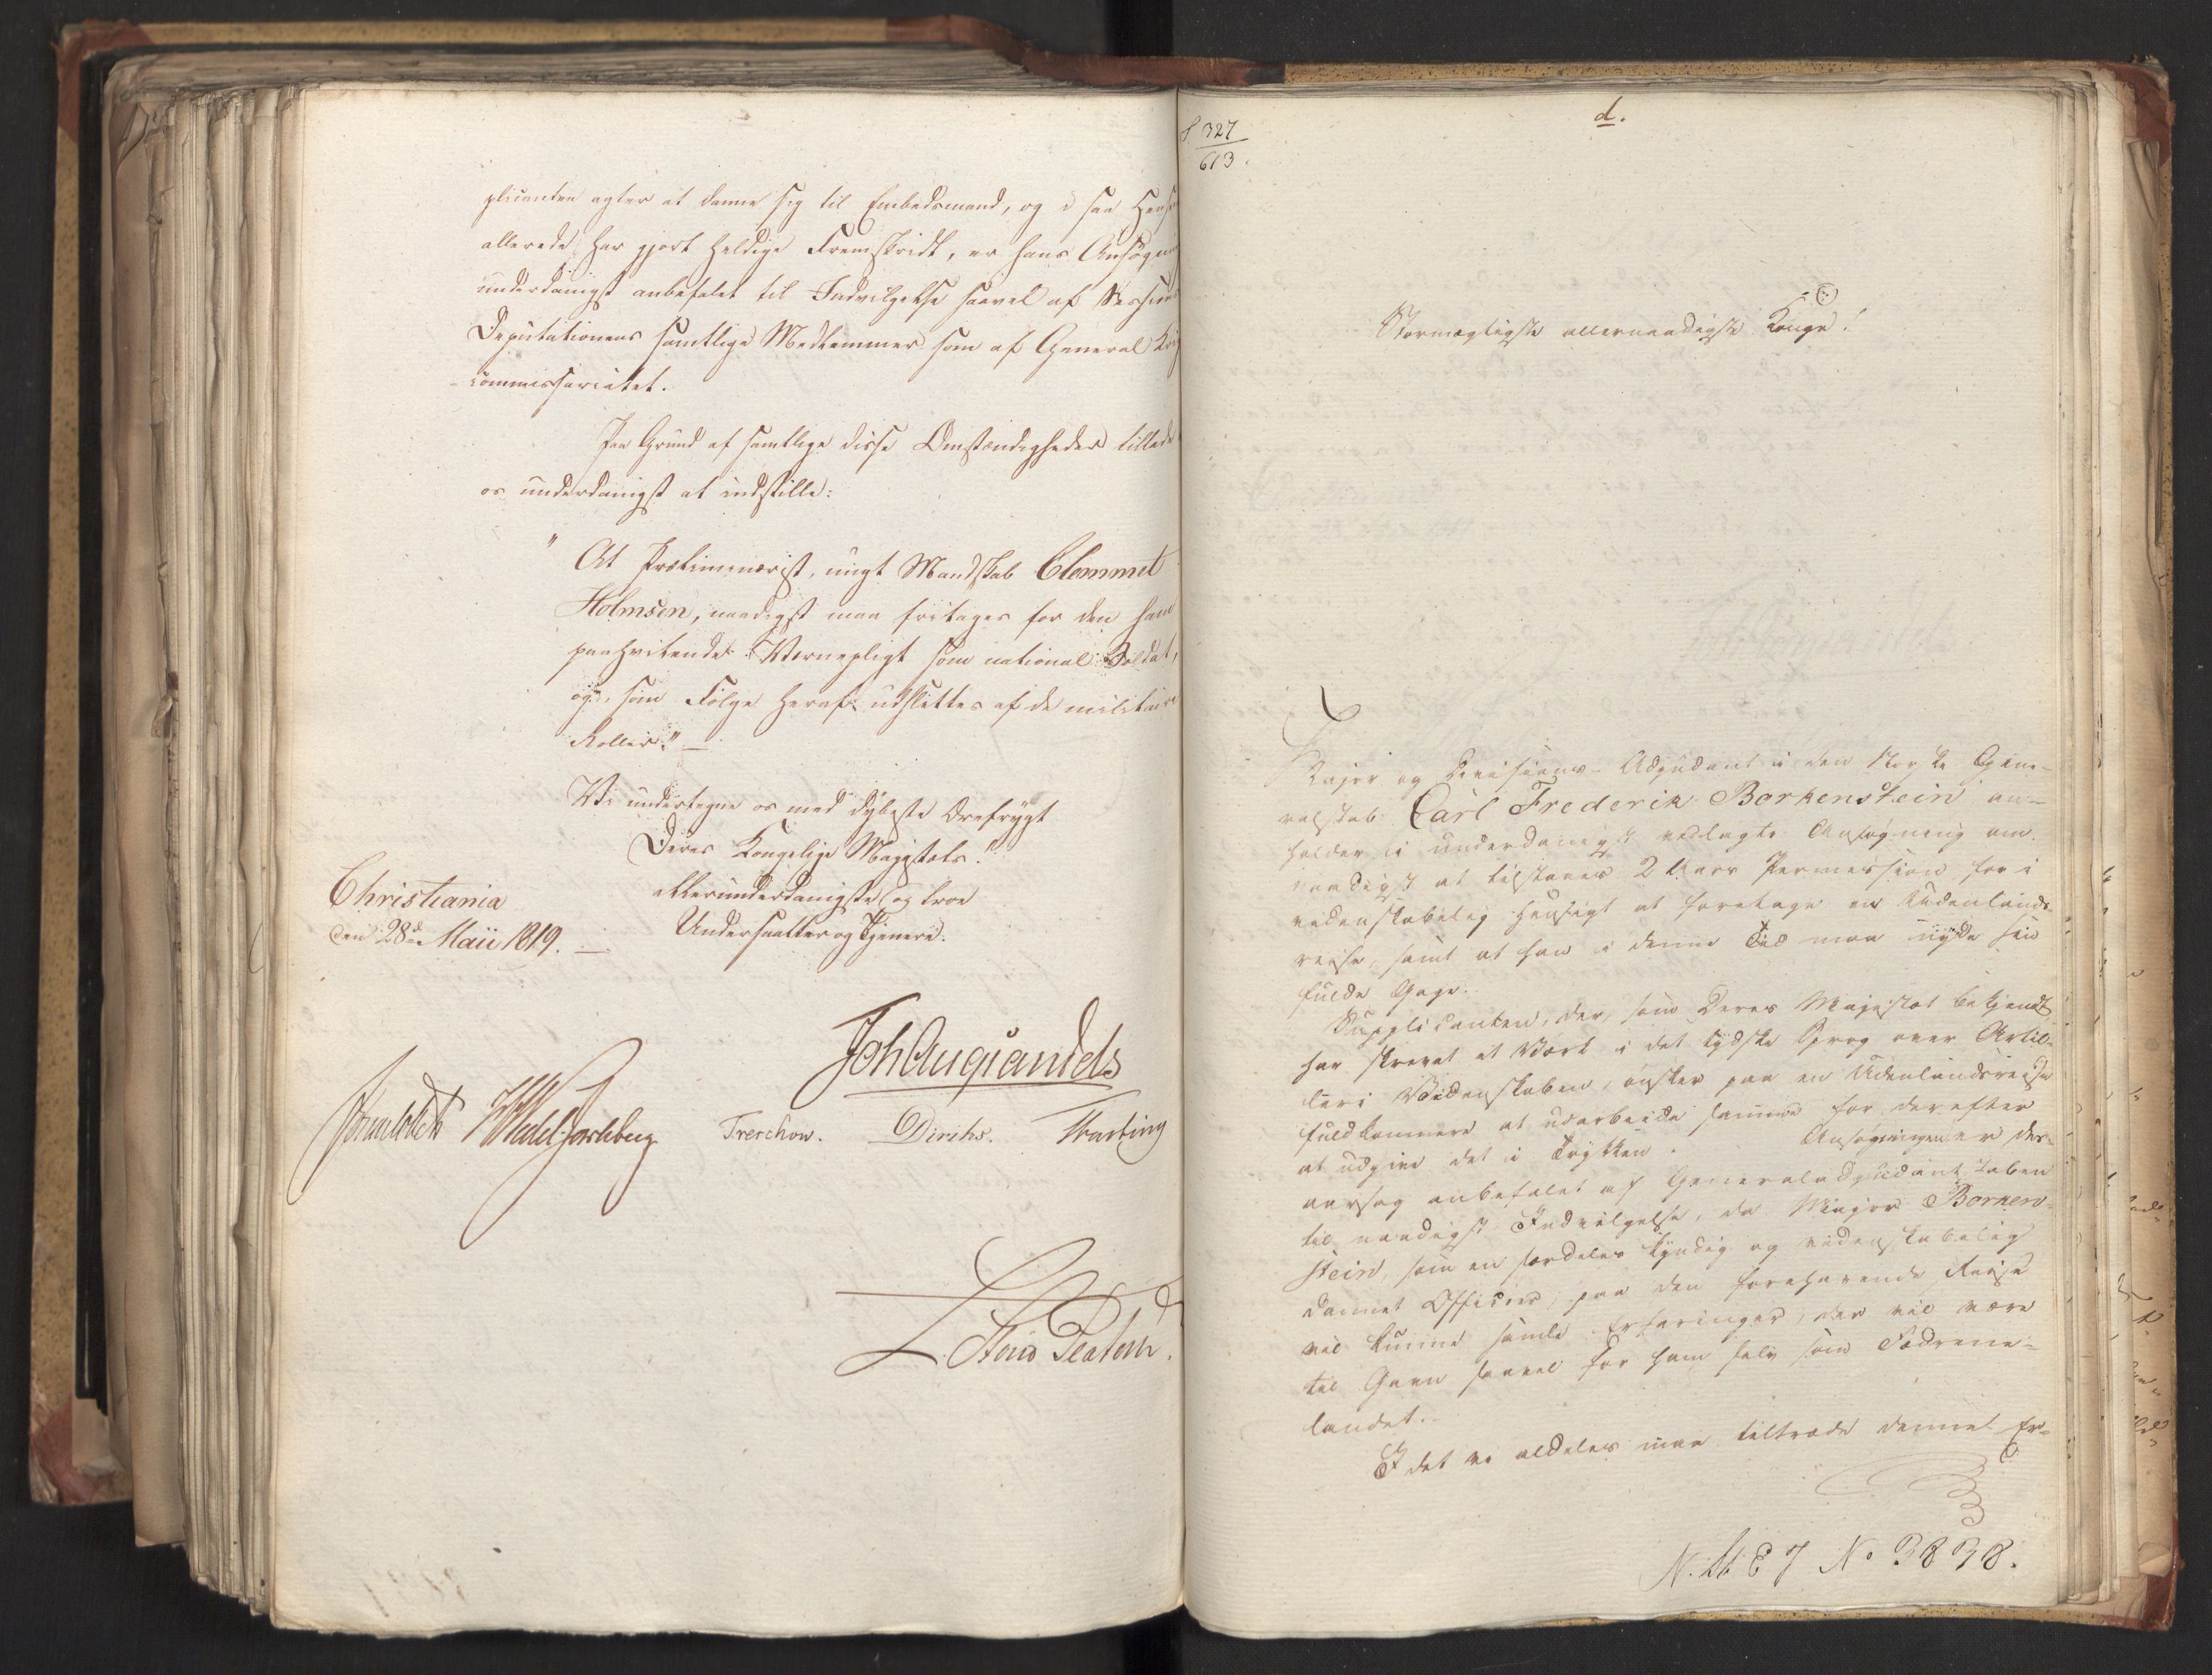 plicanten agter at danne sig til Embedsmand, og i saa Hens
allerede har gjort heldige Fremskridt, er hans Ansøgni
underdanigst anbefalet til Indvilgelse saavel af Sessions
Deputationens samtlige Medlemmer som af General Krig
commissariatet.
Paa Grund af samtlige disse Omstændigheder tillade
os underdanigst at indstille:
" At Præliminærist, ungt Mandskab Clemmet
Holmsen, naadigst maa fritages for den ham
paahvilende Værnepligt som national Soldat,
og, som Følge heraf, udslettes af de militaire
Roller." —
Vi undertegne os med dybeste Ærefrygt
Deres Kongelige Majestæts
allerunderdanigste og troe
Undersaatter og Tjenere.
Christiania
den 28de Maii 1819. —
Treschow. Diriks.
327
613.
d.
Stormægtigste allernaadigste Konge!
Major og Divisions-Adjudant i den norske Gene-
ralstab Carl Frederik Borkenstein an-
holder i underdanigst vedlagte Ansøgning om
naadigst at tilstaaes 2 Aars Permission for i
videnskabelig Hensigt at foretage en Udenlands-
reise, samt at han i denne Tid maa nyde sin
fulde Gage.
Supplicanten, der, som Deres Majestæt bekjendt,
har skrevet et Værk i det tydske Sprog over Artil-
leri Videnskaben, ønsker paa en Udenlandsreise
fuldkomnere at udarbeide samme for derefter
at udgive det i Trykken. Ansøgningen er des-
aarsag anbefalet af Generaladjudantstaben
til naadigst Indvilgelse, da Major Borken-
stein, som en særdeles kyndig og videnskabelig
dannet Officier, paa den forehavende Reise
vil kunne samle Erfaringer, der vil være
til Gavn saavel for ham selv som Fædrene-
landet.
I det vi aldeles maa tiltræde denne Er-
No 3838.